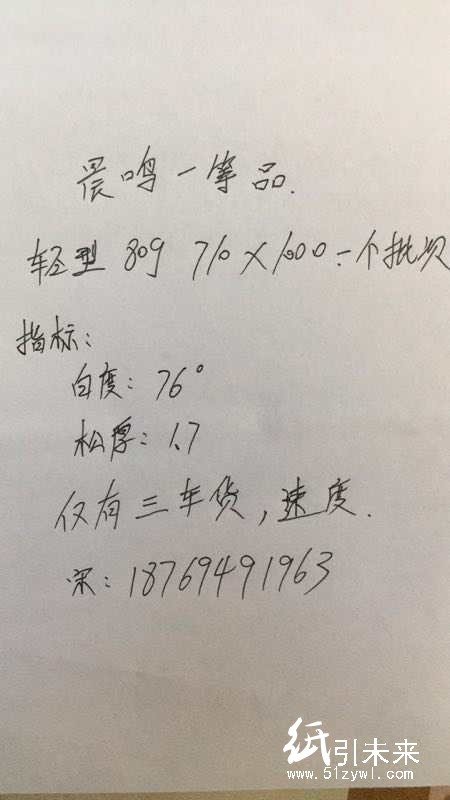 晨鸣一等品.
轻型 80g 710×1000 一个批次
指标:
白度: 76°
松厚: 1.7
仅有三车货,速度.
宋: 18769491963
纸引未来
www.51zywl.com